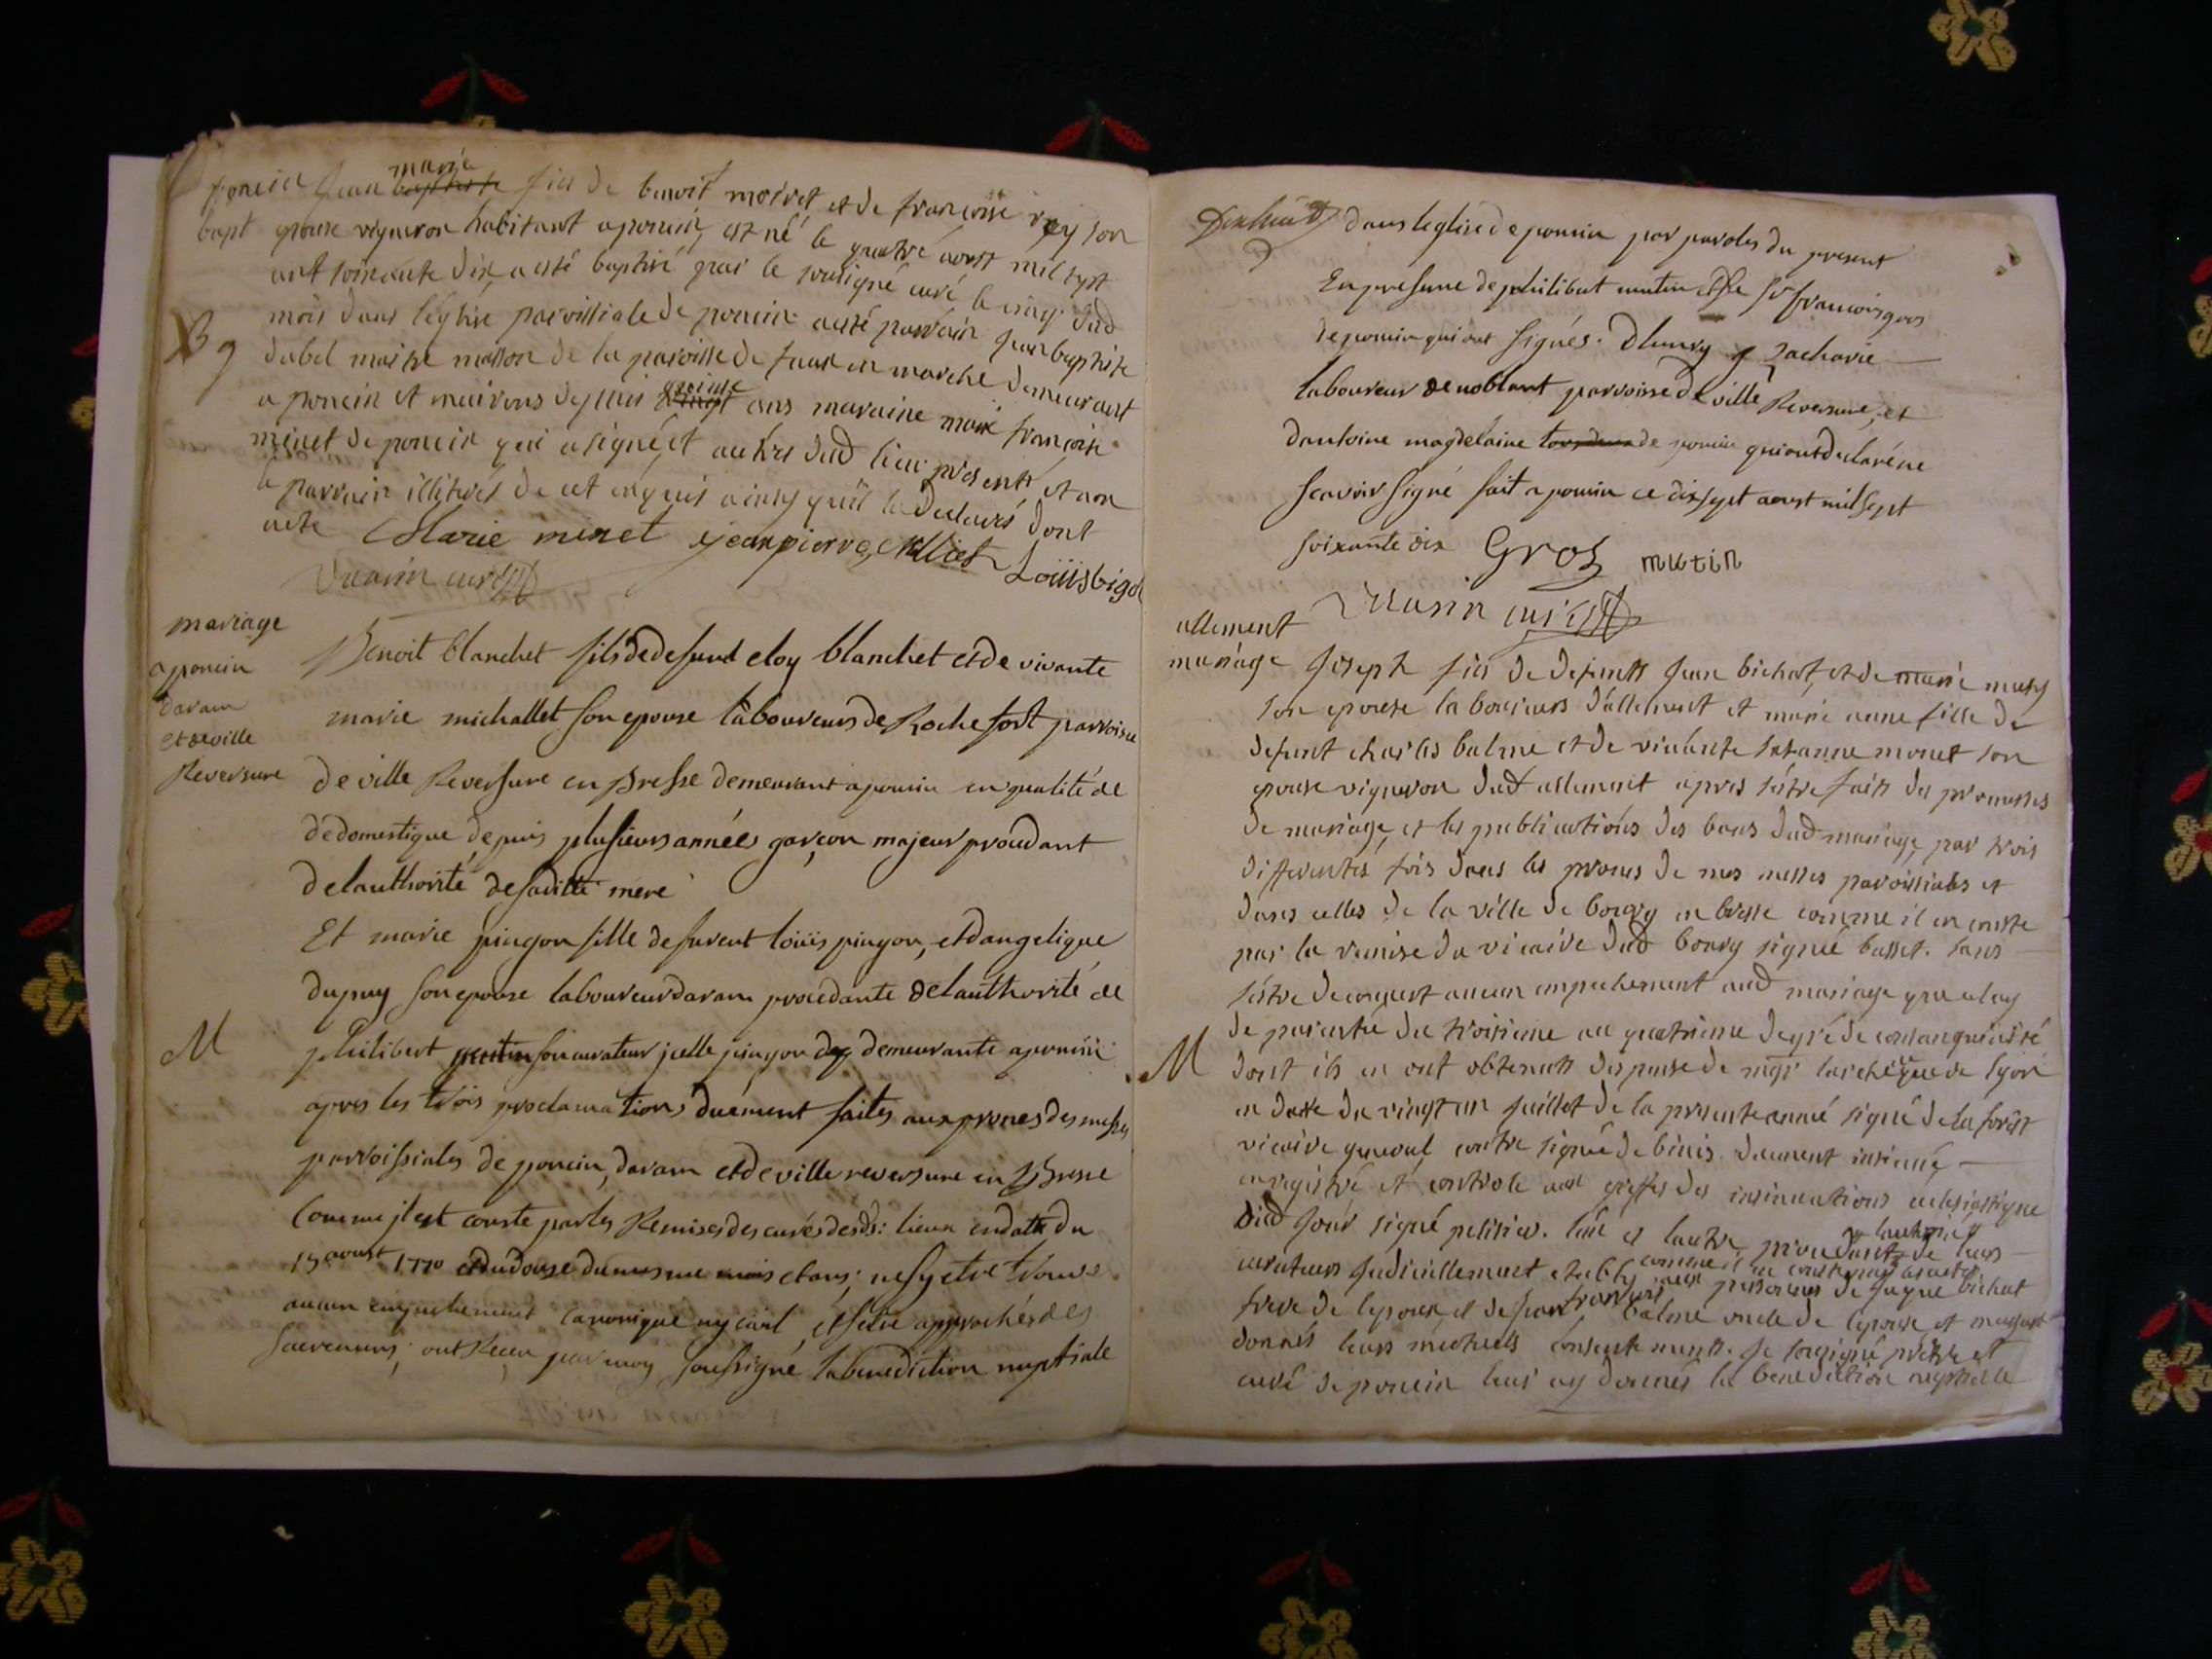 poncin jean marie fils de benoit moiret et de francoise rey son
bapt epouse vigneron habitant a poncin, est né le quatre aoust mil sept
cent soixante dix, a esté baptisé par le sousigné curé le cinq dud
mois dans l'église paroissiale de poncin a esté parrain jean baptiste
B 9
dubel maitre masson de la paroisse de faux en marche demeurant
a poncin et environs depuis quinze ans maraine marie françoise
minet de poncin qui a signé, et autres dud lieu présents, et non
le parrain illiteré de cet enquis ainsy qu'il la declaré dont
acte Marie minet jean pierre Loüis bigo
Vuarin curé
mariage
a poncin
daram
et de ville
Reversure
Benoit blanchet fils de defunt eloy blanchet et de vivante
marie michallet son epouse laboureurs de Rochefort parroisse
de ville Reversure en Bresse demeurant a poncin en qualité de
de domestique depuis plusieurs années garçon majeur procedant
de lauthorité de saditte mere
Et marie pingon fille de furent loüis pingon, et dangelique
dupuy son epouse laboureur daram procedante de lauthorité de
M
philibert mutin son curateur jcelle pingon demeurante a poncin
apres les trois proclamations duëment faites aux prones des messes
parroissiales de poncin, daram et de ville reversure en Bresse
Comme jl est conste par les Remises des curés desds: lieux en datte du
15 aoust 1770 et du douze du mesme mois et an; ne sy etre trouvé
aucun empechement canonique ny civil, et setre approchés des
sacremens; ont Receu par moy soussigné la benediction nuptiale
dans leglise de poncin par paroles du present
En presence de philibert mutin et de sr francois gros
de poncin qui ont signés. Dhenry zacharie
laboureur de noblant parroisse de ville Reversure, et
dantoine magdelaine de poncin qui ont declaré ne
scavoir signé fait a poncin ce dixsept aoust mil sept
soixante dix Gros mutin
Vuarin curé
allement
mariage joseph fils de defunts jean bichat, et de marie
son epouse laboureurs d'allement et marie anne fille de
defunt charles balme et de vivante susanne monet son
epouse vigneron dud allement apres s'être faits des promesses
de mariage, et les publications des bans dud mariage, par trois
differentes fois dans les prones de mes messes paroissiales et
dans celles de la ville de bourg en bresse comme il en conste
par la remise du vicaire dud bourg signée basset. sans
s'être decouvert aucun empechement aud mariage que celuy
de parenté du troisieme au quatrieme degré de consanguinité
M
dont ils en ont obtenu dispense de mgr larcheveque de lyon
en datte du vingt un juillet de la presente année signé de la forest
vicaire general contre signée de binis. duement insinué,
enregistré et controlé aux greffes des insinuations eclesiastique
dud jour signé pelisier. l'un et lautre procedants de lauthorité de leurs
curateurs judiciellement etablis comme il en conste par les actes aux personnes de jaque bichat
frere de lepoux et de jean francois balme oncle de lepouse et
donnés leurs mutuels consentements. je sousigné prêtre et
curé de poncin leur ay donnés la benediction nuptiale